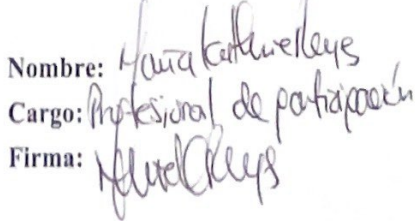 Nombre: María Katherine Reyes
Cargo: Profesional de participación
Firma: